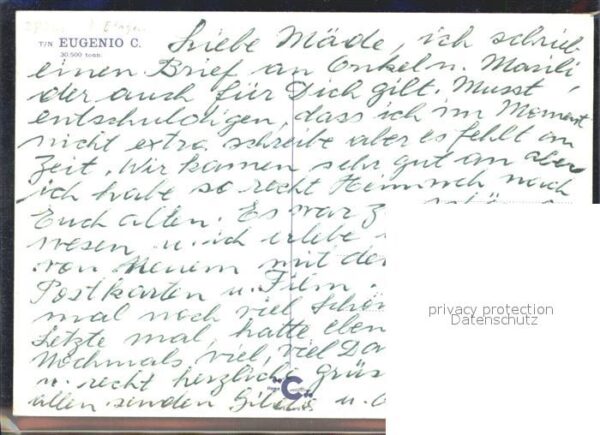 T/N EUGENIO C.
30.500 tonn.
Liebe Mäde, ich schrieb
einen Brief an Onkel u. Marili
der auch für Dich gilt. Musst
entschuldigen, dass ich im Moment
nicht extra schreibe aber es fehlt an
Zeit. Wir kamen sehr gut an aber
ich habe so recht Heimweh nach
Euch allen. Es war
wesen u. ich erlebe
von Neuem mit
Postkarten u. Film.
mal noch viel
Letzte mal, hatte
Nochmals viel, viel
u. recht herzliche
allen senden u.
privacy protection
Datenschutz
C